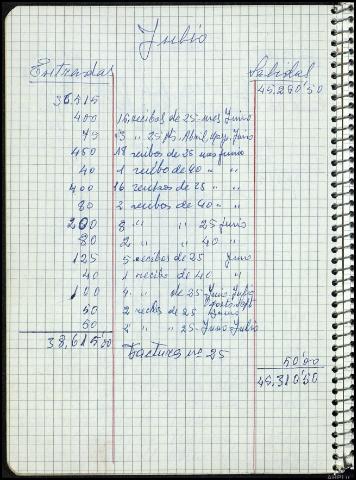 Julio
Entradas Salidas
36,515 45,290'50
400 16 recibos de 25 mes Junio
75 3 " 25 pts Abril, mayo, Junio
450 18 recibos de 25 mes Junio
40 1 recibo de 40 " "
400 16 recibos de 25 " "
80 2 recibos de 40 " "
200 8 " " 25 junio
80 2 " " 40 "
125 5 recibos de 25 Junio
40 1 recibo de 40 "
100 4 " de 25 Junio Julio
50 2 recibos de 25 Junio
60 2 " " 25 Junio Julio
38,615'00 Factura nº 25
50'00
45,310'50